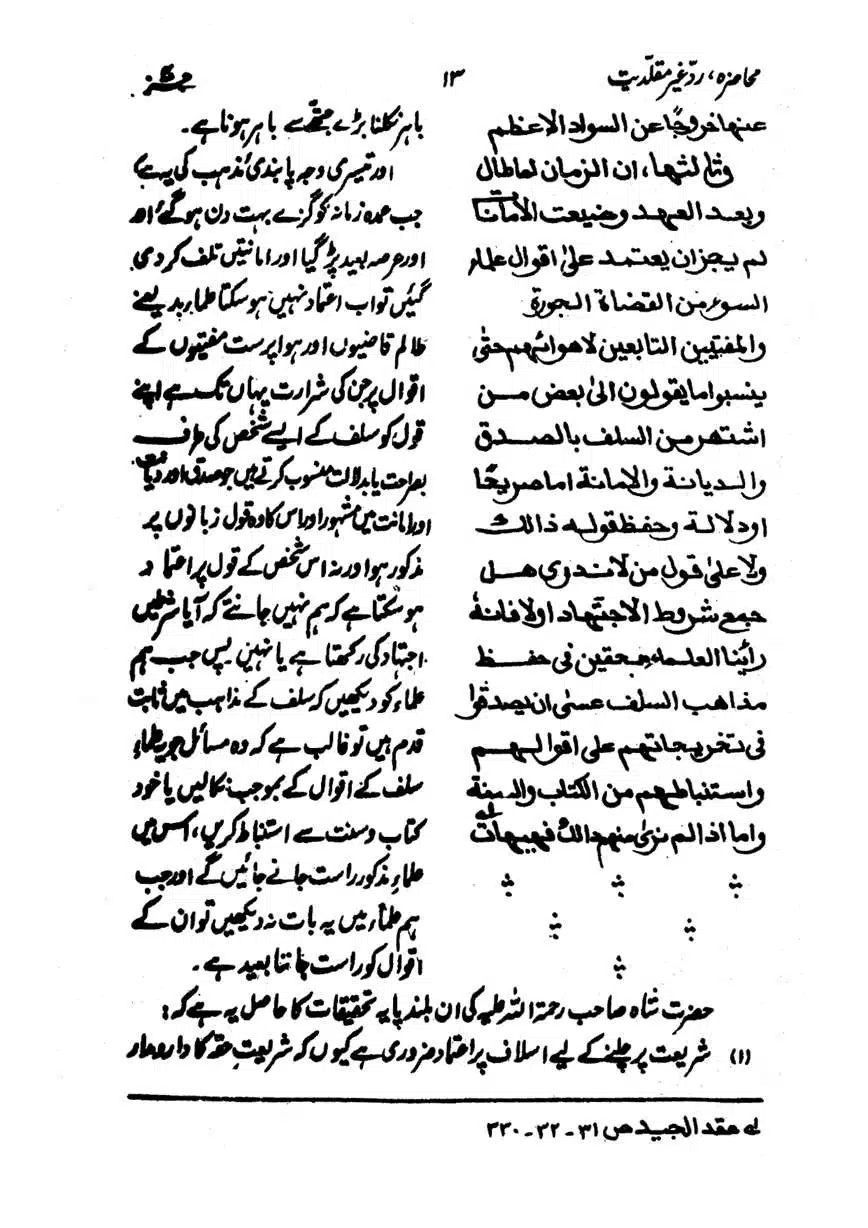 محاضرہ، ردّ غیر مقلدیت
۱۳
عنها خروجًا عن السواد الاعظم
وثالثها، ان الزمان لما طال
وبعد العهد وضيعت الأمانات
لم يجز ان يعتمد علىٰ اقوال علماء
السوء من القضاة الجورة
والمفتيين التابعين لاهوائهم حتىٰ
ينسبوا ما يقولون الىٰ بعض من
اشتهر من السلف بالصدق
والديانة والامانة اما صريحًا
او دلالة وحفظ قوله ذالك
ولا علىٰ قول من لا ندري هل
جمع شروط الاجتهاد او لا فانه
رأينا العلماء محققين فى حفظ
مذاهب السلف عسىٰ ان يصدقوا
فى تخريجاتهم على اقوالهم
واستنباطهم من الكتاب والسنة
واما اذا لم نرىٰ منهم ذالك فهيهات لہ
باہر نکلنا بڑے جتھے سے باہر ہونا ہے۔
اور تیسری وجہ پابندیٔ مذہب کی یہ ہے کہ
جب عمدہ زمانہ کو گزرے بہت دن ہو گئے اور
اور عرصہ بعید پڑ گیا اور امانتیں تلف کر دی
گئیں تو اب اعتماد نہیں ہو سکتا علماء بد یعنے
ظالم قاضیوں اور ہوا پرست مفتیوں کے
اقوال پر جن کی شرارت یہاں تک ہے اپنے
قول کو سلف کے ایسے شخص کی طرف
بصراحت یا بدلالت منسوب کرتے ہیں جو صدق اور دیانت
اور امانت میں مشہور اور اس کا وہ قول زبانوں پر
مذکور ہوا ور نہ اس شخص کے قول پر اعتماد
ہو سکتا ہے کہ ہم نہیں جانتے کہ آیا شرطیں
اجتہاد کی رکھتا ہے یا نہیں پس جب ہم
علماء کو دیکھیں کہ سلف کے مذاہب میں ثابت
قدم ہیں تو غالب ہے کہ وہ مسائل جو یہ علماء
سلف کے اقوال کے بموجب نکالیں یا خود
کتاب و سنت سے استنباط کریں، اس میں
علماءِ مذکور راست جانے جائیں گے اور جب
ہم علمآء میں یہ بات نہ دیکھیں تو ان کے
اقوال کو راست جاننا بعید ہے۔
حضرت شاہ صاحب رحمۃ اللہ علیہ کی ان بلند پایہ تحقیقات کا حاصل یہ ہے کہ:
(۱) شریعت پر چلنے کے لیے اسلاف پر اعتماد ضروری ہے کیوں کہ شریعتِ حقہ کا دارومدار
لہ عقد الجید ص ۳۱ - ۳۲ - ۳۳۰